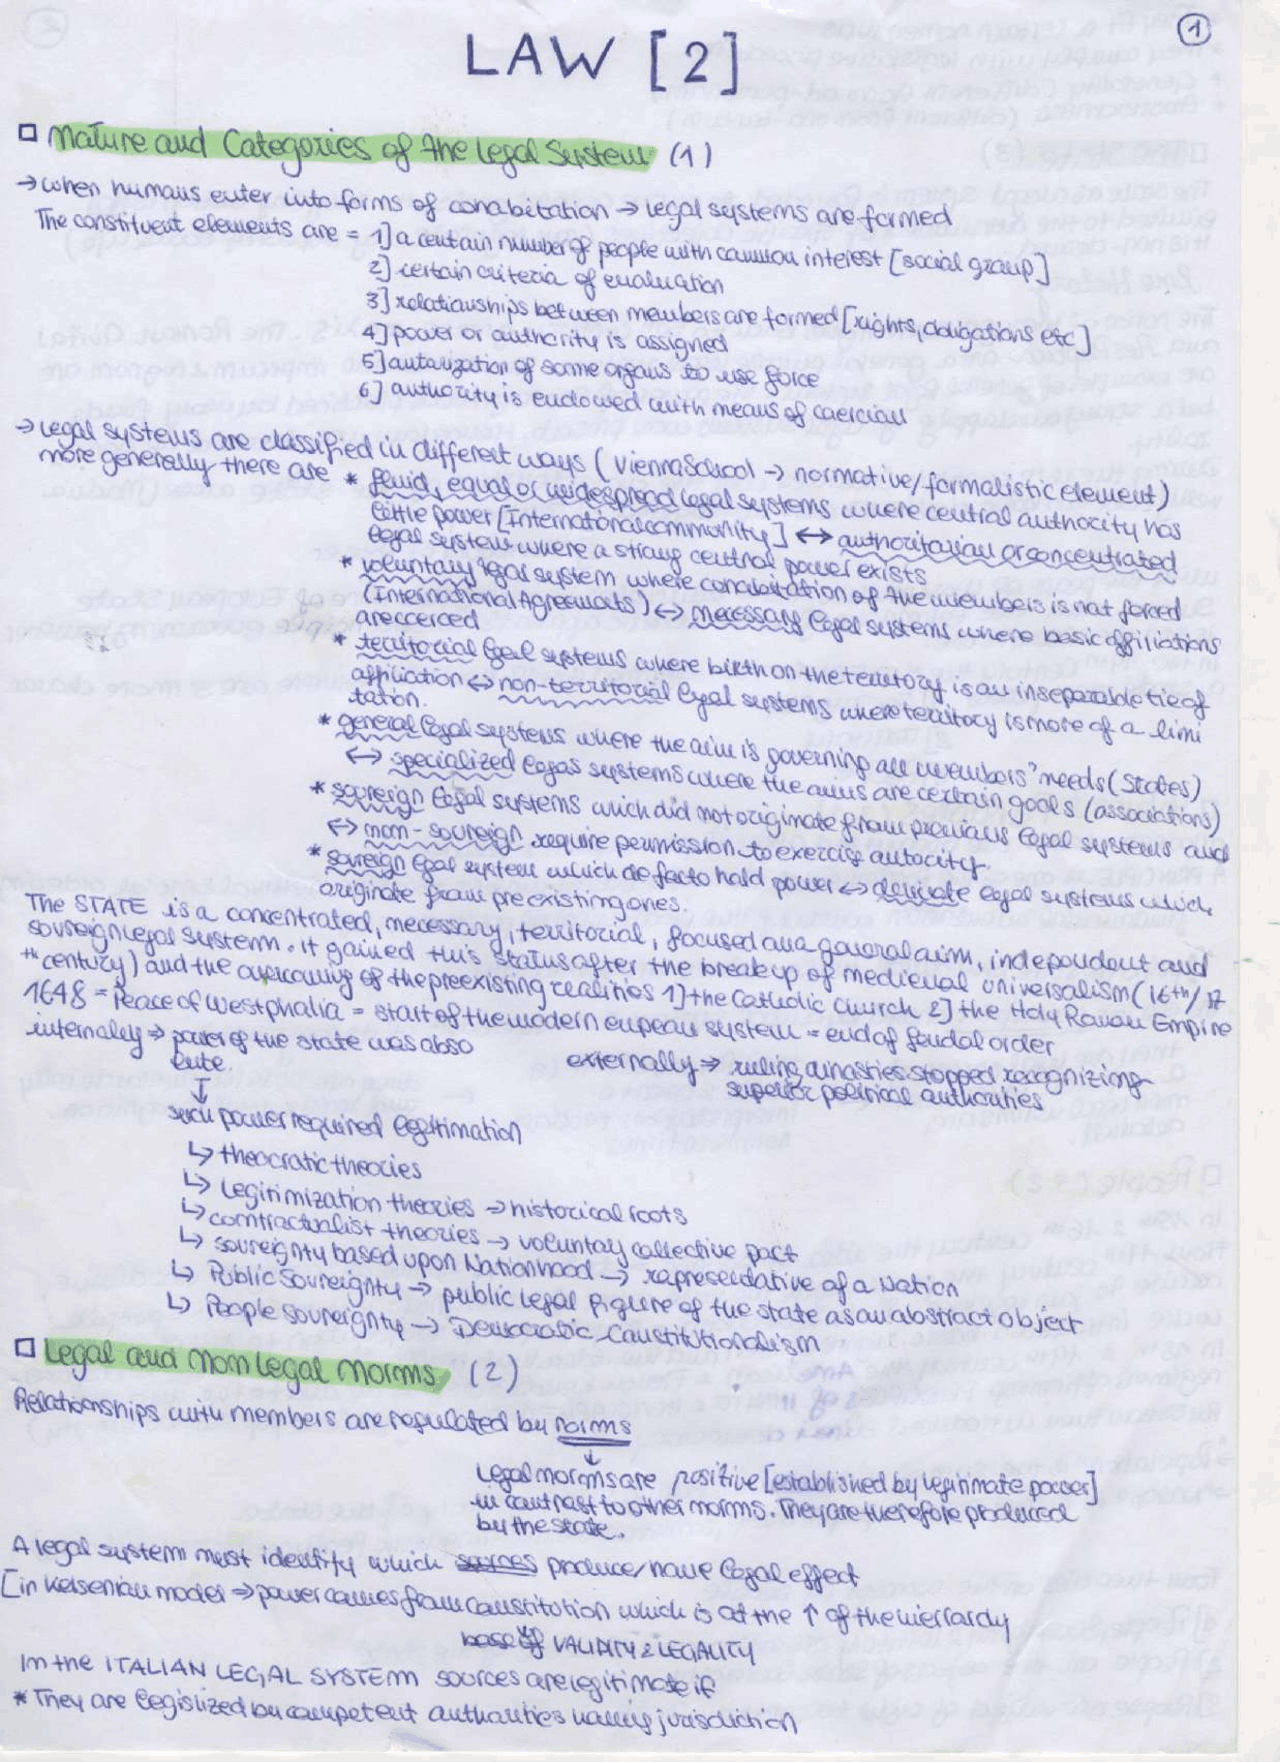 1
LAW [2]
□ Nature and Categories of the Legal System (1)
→ when humans enter into forms of conabitation → legal systems are formed
The constituent elements are = 1] a certain number of people with common interest [social group]
2] certain criteria of evaluation
3] relationships between members are formed [rights, obligations etc]
4] power or authority is assigned
5] autorization of some organs to use force
6] authority is endowed with means of coercion
→ Legal systems are classified in different ways (Vienna School → normative/formalistic element)
more generally there are * fluid, equal or widespread legal systems where central authority has
little power [International community] ↔ authoritarian or concentrated
legal system where a strong central power exists
* voluntary legal system where conabitation of the members is not forced
(International Agreements) ↔ necessary legal systems where basic affiliations
are coerced
* territorial legal systems where birth on the territory is an inseparable tie of
affiliation ↔ non-territorial legal systems where territory is more of a limi
tation.
* general legal systems where the aim is governing all members' needs (States)
↔ specialized legal systems where the aims are certain goals (associations)
* sovreign legal systems which did not originate from previous legal systems and
↔ non-sovreign require permission to exercise autocity.
* sovreign legal system which de facto hold power ↔ derivate legal systems which
originate from preexisting ones.
The STATE is a concentrated, necessary, territorial, focused on a general aim, independent and
sovreign legal system. it gained this status after the breakup of medieval universalism (16th/17
th century) and the overcoming of the preexisting realities 1] the Catholic Church 2] the Holy Roman Empire
1648 = Peace of Westphalia = start of the modern eupean system = end of feudal order
internally ⇒ power of the state was abso
lute.
externally ⇒ ruling dinasties stopped recognizing
superior political authorities
↓
such power required legittimation
↳ theocratic theories
↳ legitimization theories → historical roots
↳ contractualist theories → voluntary collective pact
↳ sovreignty based upon Nationhood → rapresentative of a Nation
↳ Public Sovreignty → public legal figure of the state as an abstract object
↳ People sovreignty → Democratic Constitutionalism
□ Legal and non Legal norms (2)
Relationships with members are regulated by norms
↓
Legal norms are positive [established by legitimate power]
in contrast to other norms. They are therefore produced
by the state.
A legal system must identify which sources produce/have legal effect
[in Kelsenian model ⇒ power comes from constitution which is at the ↑ of the hierrardy
base of VALIDITY & LEGALITY
In the ITALIAN LEGAL SYSTEM sources are legitimate if
* They are legislized by competent authorities having jurisdiction